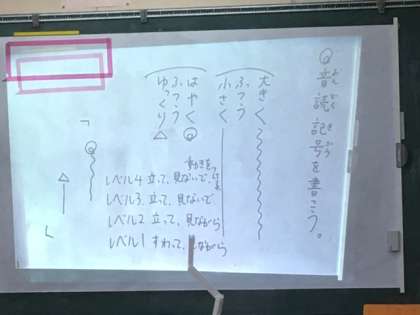 ◎音読記号を書こう。
大きく
ふつう
小さく
はやく ◎
ふつう
ゆっくり △
動きをつける
レベル4 立って、見ないで、
レベル3 立って、見ないで
レベル2 立って、見ながら
レベル1 すわって、見ながら
「
◎
△
」